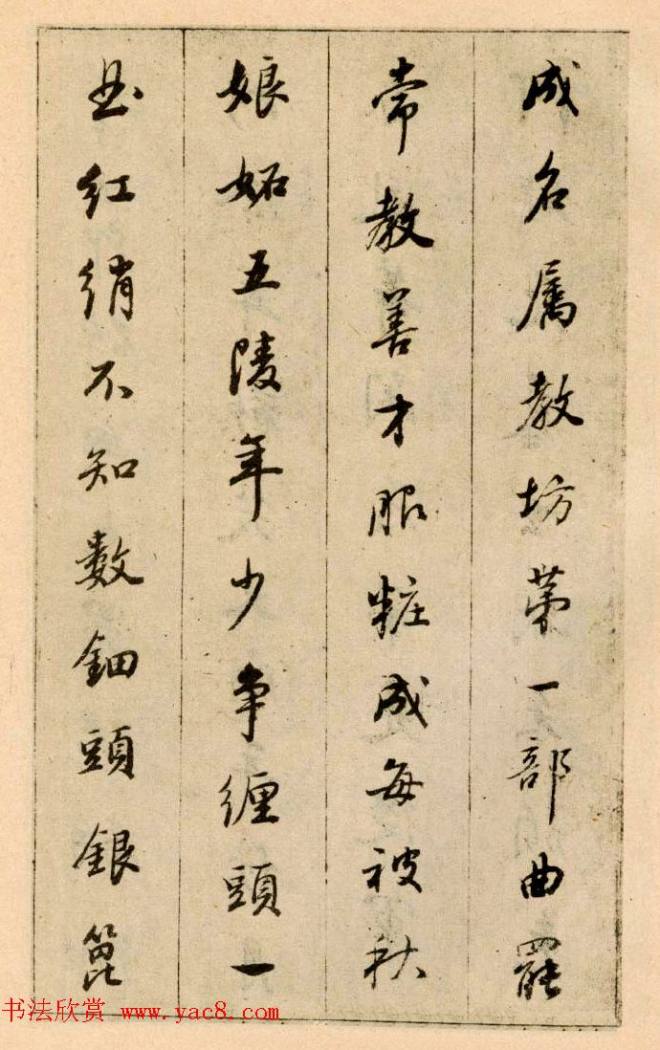 成名屬教坊第一部曲罷
常教善才服粧成每被秋
娘妬五陵年少争纏頭一
曲紅綃不知數鈿頭銀篦
书法欣赏 www.yac8.com